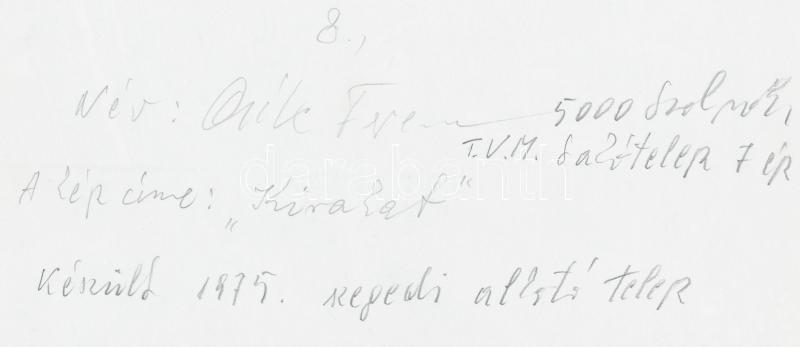 8.,
Név: Csík Ferenc 5000 Szolnok,
T.V.M. Lakótelep 7 ép
A kép címe: „Kirakat"
Készült 1975. szegedi alkotó telep
darabanth